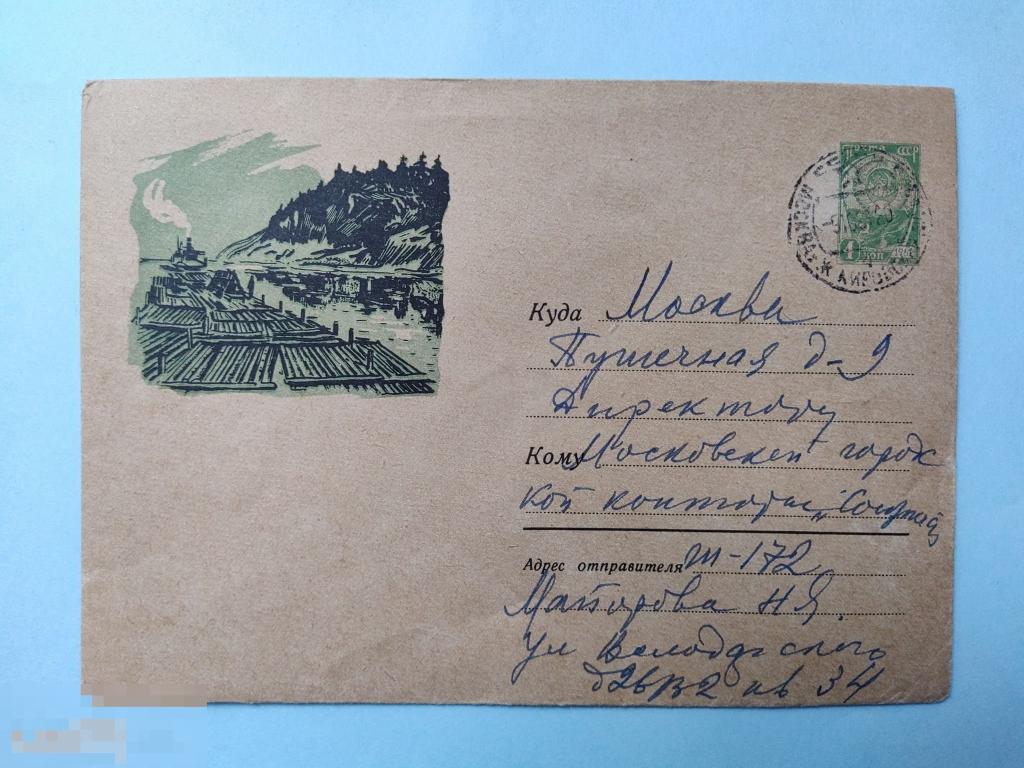 ПОЧТА СССР
4 КОП
МОСКВА
Куда Москва
Пушечная д-9
Директору
Кому Московской город
кой конторы „Союзпеч
Адрес отправителя Ж-172
Майорова Н Я.
ул Володарского
д 26 в 2 кв 34